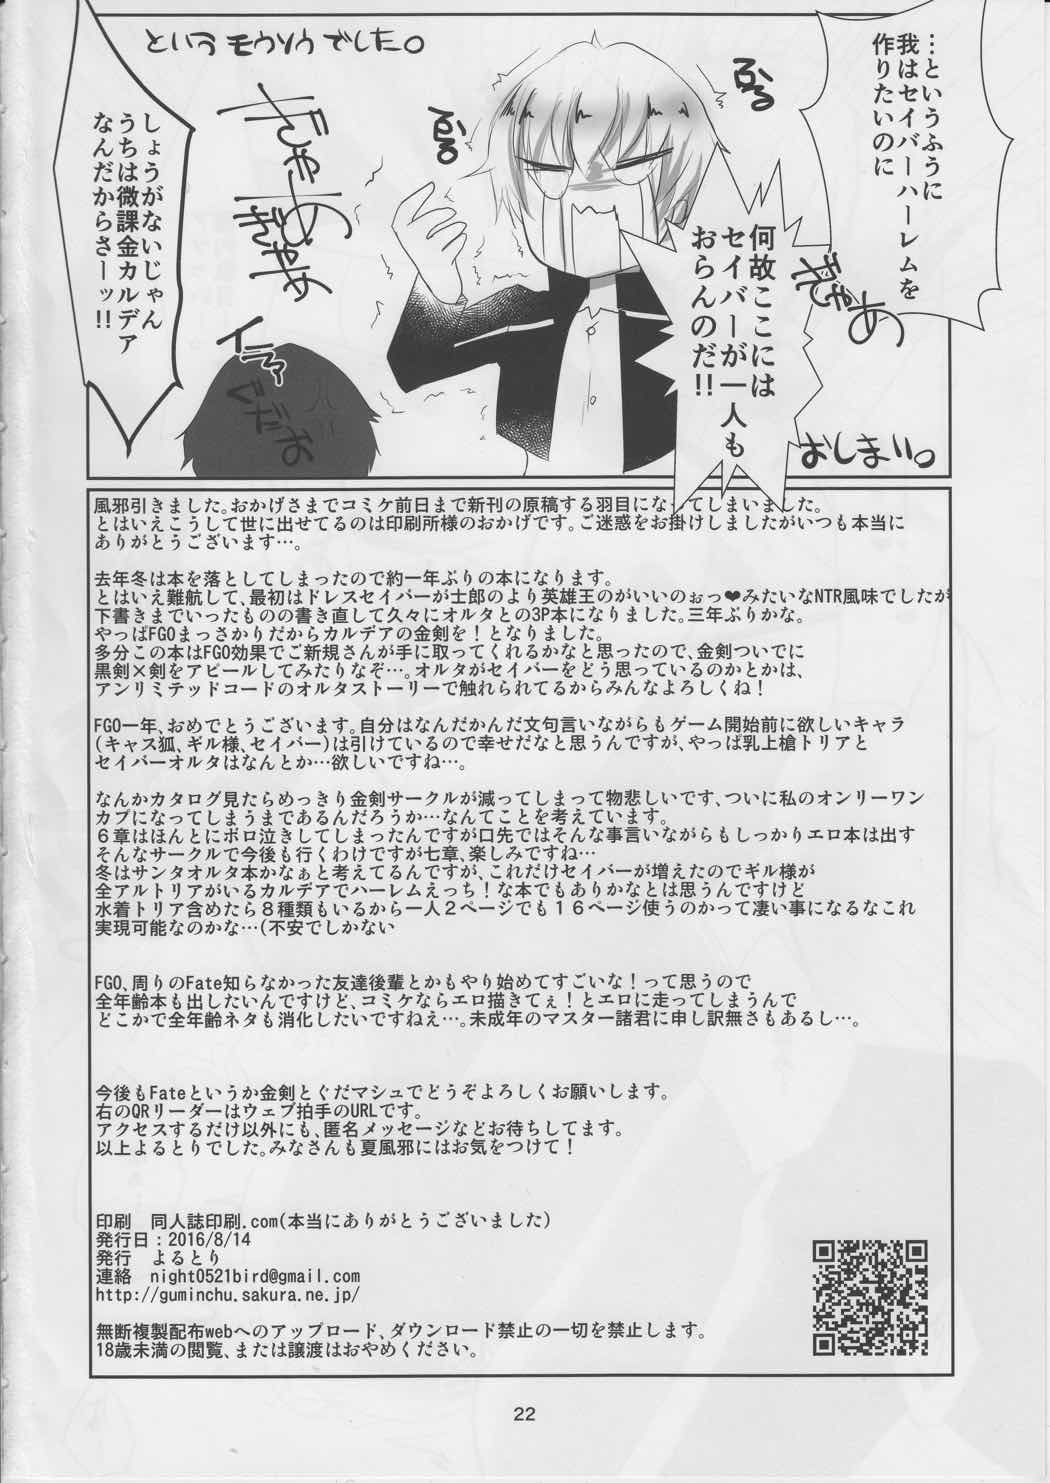 …というふうに
我はセイバーハーレムを
作りたいのに
何故ここには
セイバーが一人も
おらんのだ!!
ぎゃあ
ぶるる
ぶるる
というモウソウでした。
ぎゃあ
ぎゃあ
しょうがないじゃん
うちは微課金カルデア
なんだからさーッ!!
イラッ
ぐだお
おしまい。
風邪引きました。おかげさまでコミケ前日まで新刊の原稿する羽目になってしまいました。
とはいえこうして世に出せてるのは印刷所様のおかげです。ご迷惑をお掛けしましたがいつも本当に
ありがとうございます…。
去年冬は本を落としてしまったので約一年ぶりの本になります。
とはいえ難航して、最初はドレスセイバーが士郎のより英雄王のがいいのぉっ❤みたいなNTR風味でしたが
下書きまでいったものの書き直して久々にオルタとの3P本になりました。三年ぶりかな。
やっぱFGOまっさかりだからカルデアの金剣を！となりました。
多分この本はFGO効果でご新規さんが手に取ってくれるかなと思ったので、金剣ついでに
黒剣×剣をアピールしてみたりなぞ…。オルタがセイバーをどう思っているのかとかは、
アンリミテッドコードのオルタストーリーで触れられてるからみんなよろしくね！
FGO一年、おめでとうございます。自分はなんだかんだ文句言いながらもゲーム開始前に欲しいキャラ
(キャス狐、ギル様、セイバー)は引けているので幸せだなと思うんですが、やっぱ乳上槍トリアと
セイバーオルタはなんとか…欲しいですね…。
なんかカタログ見たらめっきり金剣サークルが減ってしまって物悲しいです、ついに私のオンリーワン
カプになってしまうまであるんだろうか…なんてことを考えています。
６章はほんとにボロ泣きしてしまったんですが口先ではそんな事言いながらもしっかりエロ本は出す
そんなサークルで今後も行くわけですが七章、楽しみですね…
冬はサンタオルタ本かなぁと考えてるんですが、これだけセイバーが増えたのでギル様が
全アルトリアがいるカルデアでハーレムえっち！な本でもありかなとは思うんですけど
水着トリア含めたら８種類もいるから一人２ページでも１６ページ使うのかって凄い事になるなこれ
実現可能なのかな…(不安でしかない
FGO、周りのFate知らなかった友達後輩とかもやり始めてすごいな！って思うので
全年齢本も出したいんですけど、コミケならエロ描きてぇ！とエロに走ってしまうんで
どこかで全年齢ネタも消化したいですねえ…。未成年のマスター諸君に申し訳無さもあるし…。
今後もFateというか金剣とぐだマシュでどうぞよろしくお願いします。
右のQRリーダーはウェブ拍手のURLです。
アクセスするだけ以外にも、匿名メッセージなどお待ちしてます。
以上よるとりでした。みなさんも夏風邪にはお気をつけて！
印刷　同人誌印刷.com(本当にありがとうございました)
発行日：2016/8/14
発行　よるとり
連絡　night0521bird@gmail.com
http://guminchu.sakura.ne.jp/
無断複製配布webへのアップロード、ダウンロード禁止の一切を禁止します。
18歳未満の閲覧、または譲渡はおやめください。
22